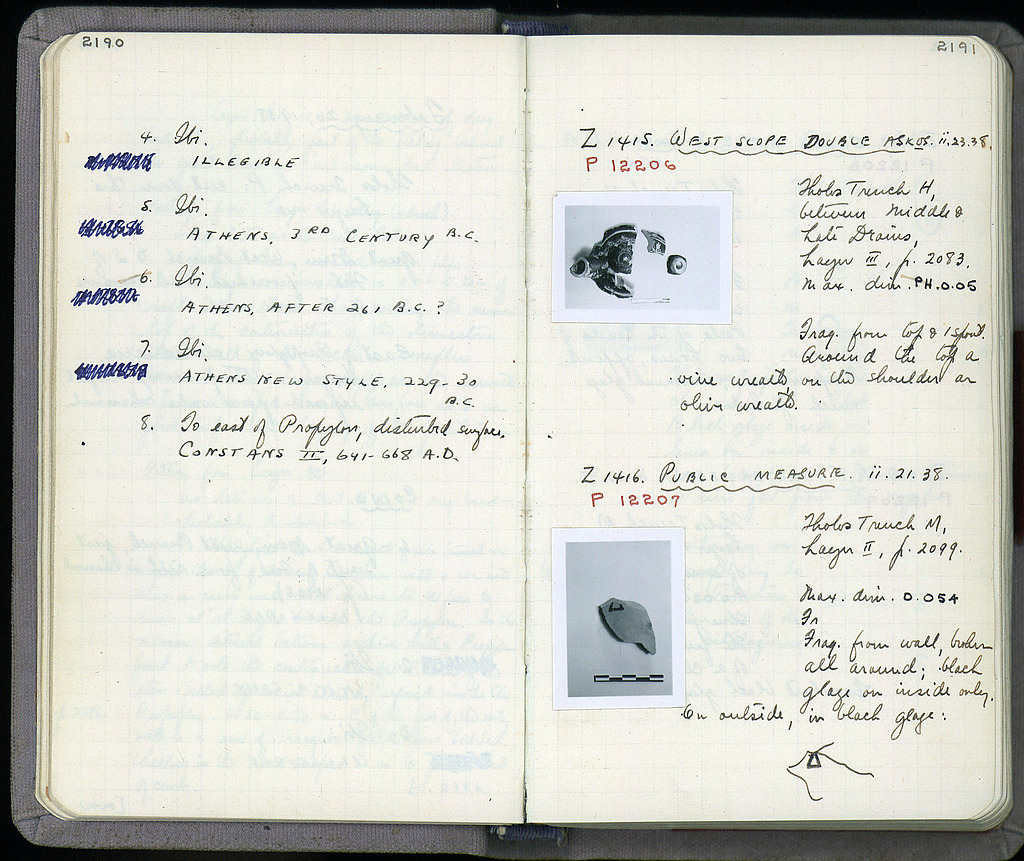 2190
4. Ibi.
ILLEGIBLE
5. Ibi.
ATHENS, 3RD CENTURY B.C.
6. Ibi.
ATHENS, AFTER 261 B.C.?
7. Ibi.
ATHENS NEW STYLE, 229-30
B.C.
8. To east of Propylon, disturbed surface.
CONSTANS II, 641-668 A.D.
2191
Z 1415. WEST SLOPE DOUBLE ASKOS. ii.23.38.
P 12206
Tholos Trench H,
between Middle &
Late Drains,
Layer III, p. 2083.
Max. dim. PH.0.05
Frag. from top & 1 spout.
Around the top a
vine wreath, on the shoulder an
olive wreath.
Z 1416. PUBLIC MEASURE. ii.21.38.
P 12207
Tholos Trench M,
Layer II, p. 2099.
Max. dim. 0.054
Fr
Frag. from wall, broken
all around; black
glaze on inside only.
On outside, in black glaze: